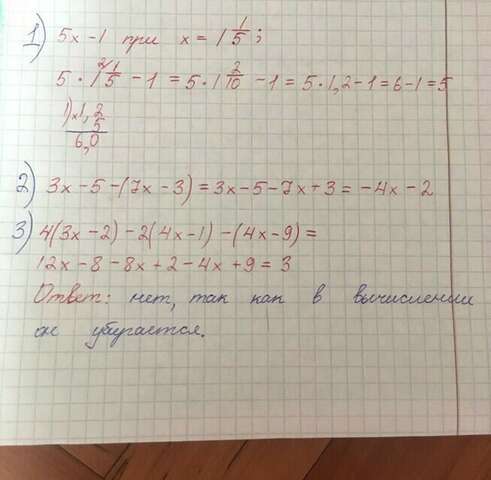 1) 5x - 1 при x = 1 1/5;
5 · 1 1/5 - 1 = 5 · 1 2/10 - 1 = 5 · 1,2 - 1 = 6 - 1 = 5
1) x 1,2
5
6,0
2) 3x - 5 - (7x - 3) = 3x - 5 - 7x + 3 = -4x - 2
3) 4(3x - 2) - 2(4x - 1) - (4x - 9) =
12x - 8 - 8x + 2 - 4x + 9 = 3
Ответ: нет, так как в вычислении
он убирается.